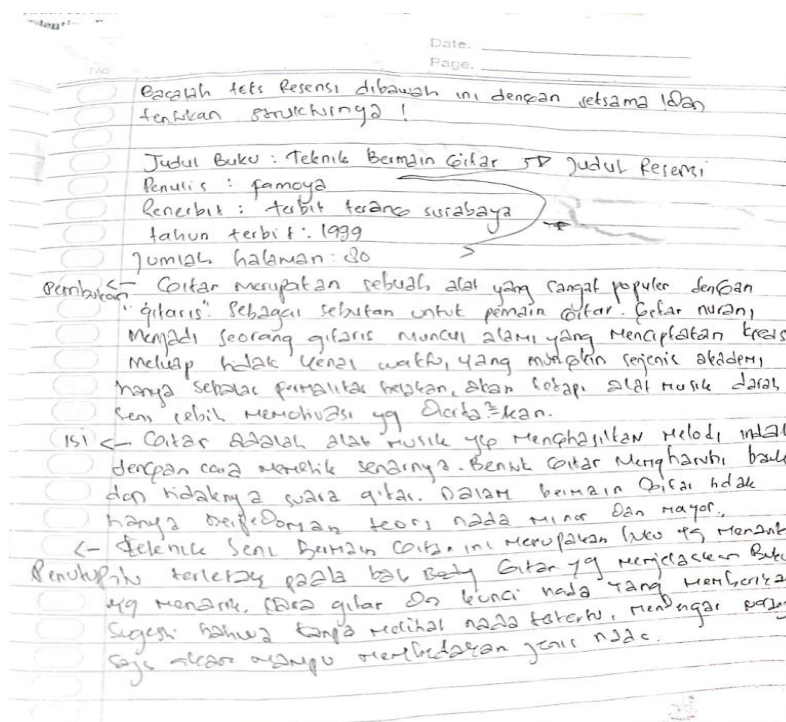 Date.
Page.
No
Bacalah teks Resensi dibawah ini dengan seksama !Dan
tentukan strukturnya !
Judul Buku : Teknik Bermain Gitar Judul Resensi
Penulis : famoya
Penerbit : terbit terang surabaya
tahun terbit : 1999
Jumlah halaman : 80
Pembukaan <- Gitar merupakan sebuah alat yang sangat populer dengan
"gitaris". Sebagai sebutan untuk pemain gitar. Getar nurani
menjadi seorang gitaris muncul alami yang menciptakan kreas
meluap tidak kenal waktu, yang mungkin sejenis akademi
hanya sebatas formalitas belakan, akan tetapi alat musik darah
seni lebih memotivasi yg dicita²kan.
Isi <- Gitar adalah alat musik yg menghasilkan melodi indah
dengan cara memetik senarnya. Bentuk gitar mengharuhi baik
dan tidaknya suara gitar. Dalam bermain gitar tidak
hanya berpedoman teori nada minor dan mayor.
<- Seni Bermain Gitar ini merupakan buku yg menarik
Penutup itu terletak pada bab Body Gitar yg menjelaskan Buku
yg menarik, cara gitar kunci nada yang memberika
sugesti bahwa tanpa melihat nada, mendengar
saja akan mampu membedakan jenis nada.